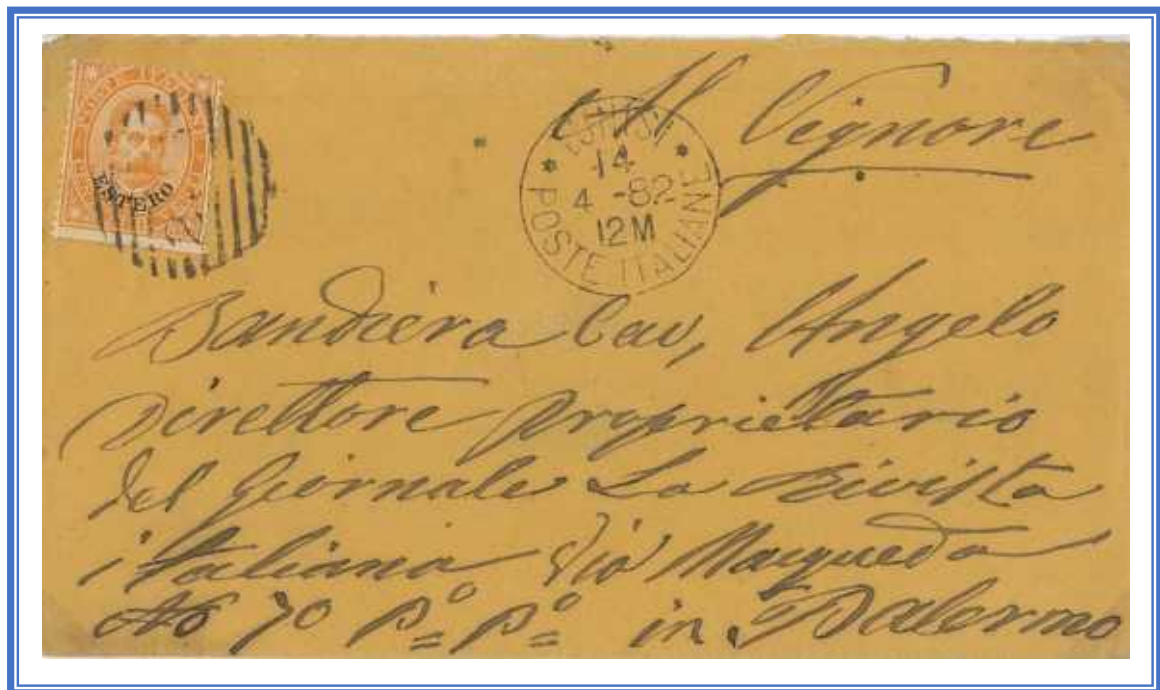 ESTERO
14
4 -82
12M
POSTE ITALIANE
All Signore
Bandiera Cav, Angelo
Direttore proprietario
del Giornale La Rivista
italiana Via Maqueda
No 70 Pº Pº in Palermo